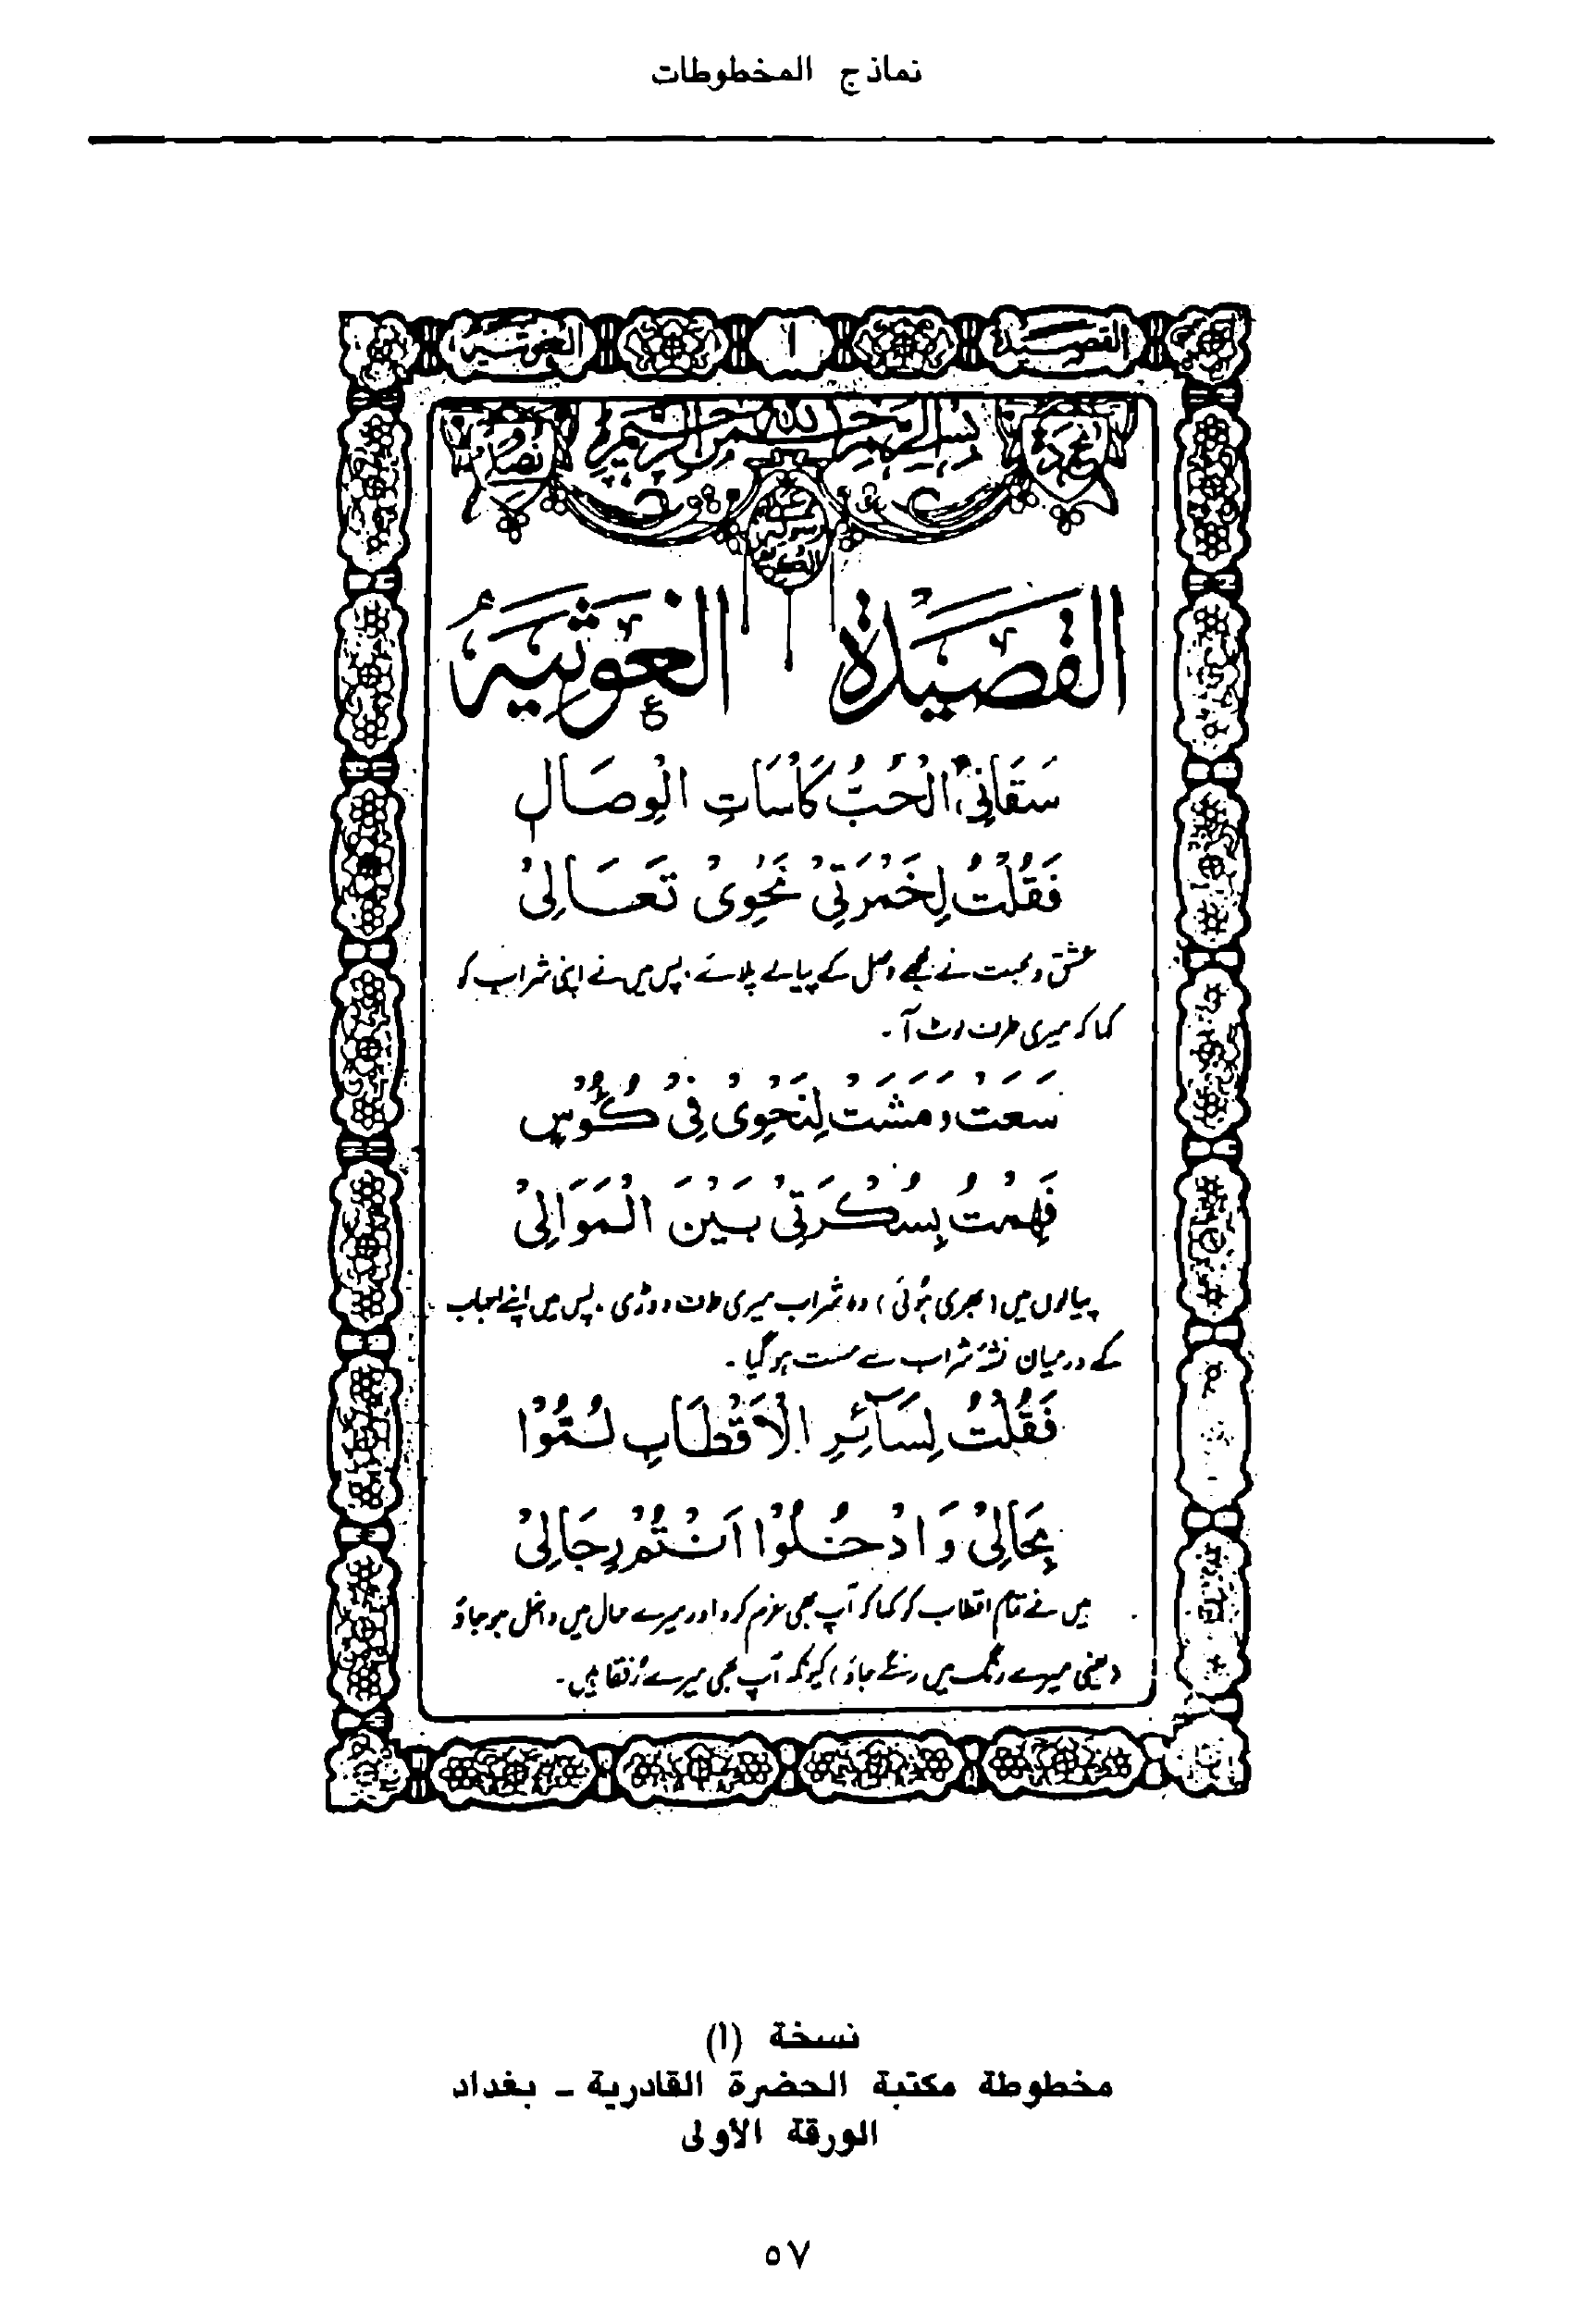 نماذج المخطوطات
القصيدة ا الغوثية
بسم الله الرحمن الرحيم
نحمده نصلي
على رسوله الكريم
القَصِيْدَةُ الغَوْثِيَةُ
سَقَانِي الْحُبُّ كَاْسَاتِ الْوِصَالِ
فَقُلْتُ لِخَمْرَتِيْ نَحْوِيْ تَعَالِيْ
عشق و محبت نے مجھے وصل کے پیالے پلائے۔ پس میں نے اپنی شراب کو
کہا کہ میری طرف لوٹ آ۔
سَعَتْ وَمَشَتْ لِنَحْوِيْ فِيْ كُؤُوْسٍ
فَهِمْتُ بِسُكْرَتِيْ بَيْنَ الْمَوَالِيْ
پیالوں میں (بھری ہوئی) وہ شراب میری طرف دوڑی۔ پس میں اپنے احباب
کے درمیان نشۂ شراب سے مست ہو گیا۔
فَقُلْتُ لِسَآئِرِ الْاَقْطَابِ لُمُّوْا
بِحَالِيْ وَادْخُلُوْا اَنْتُمْ رِجَالِيْ
میں نے تمام اقطاب کو کہا کہ آپ بھی عزم کرو اور میرے حال میں داخل ہو جاؤ
(یعنی میرے رنگ میں رنگے جاؤ) کیونکہ آپ بھی میرے رُفقا ہیں۔
نسخة (ا)
مخطوطة مكتبة الحضرة القادرية - بغداد
الورقة الأولى
٥٧